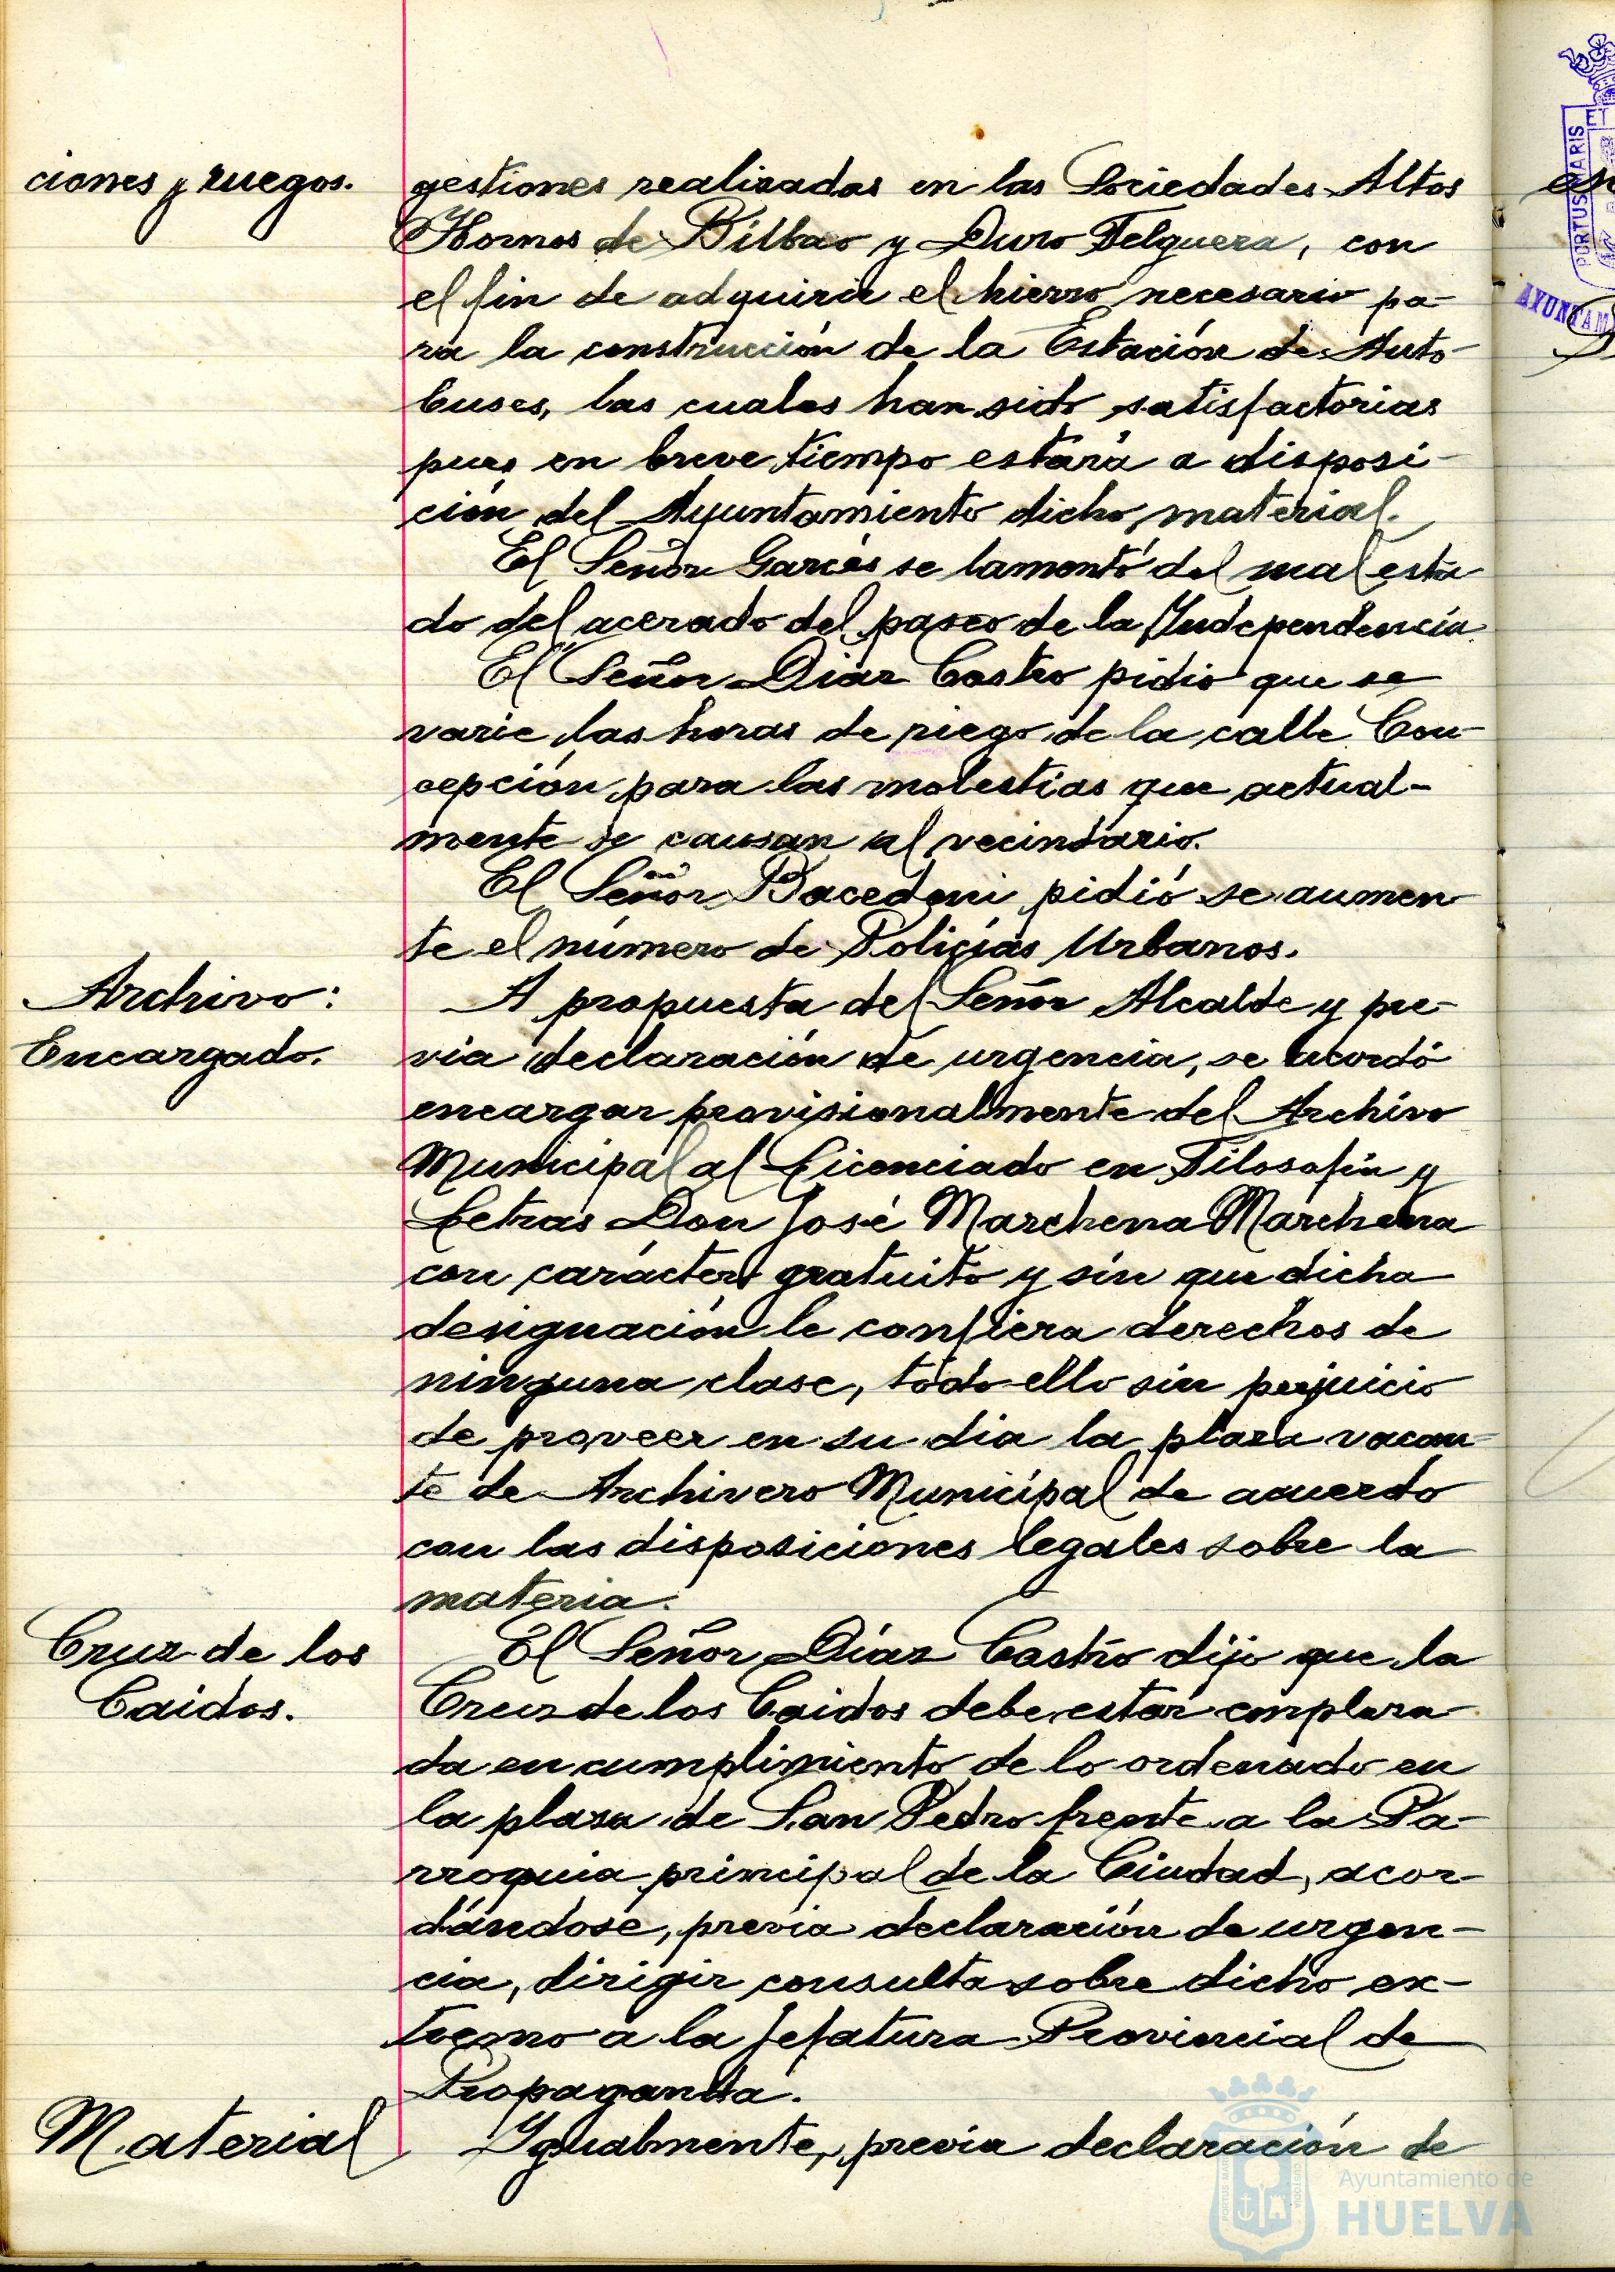 ciones y ruegos.
gestiones realizadas en las Sociedades Altos
Hornos de Bilbao y Duro Felguera, con
el fin de adquirir el hierro necesario pa-
ra la construcción de la Estación de Auto-
buses, las cuales han sido satisfactorias
pues en breve tiempo estará a disposi-
ción del Ayuntamiento dicho material.
El Señor Garcés se lamentó del mal esta
do del acerado del paseo de la Independencia.
El Señor Díaz Castro pidió que se
varie las horas de riego de la calle Con-
cepción para las molestias que actual-
mente se causan al vecindario.
El Señor Bacedoni pidió se aumen-
te el número de Policías Urbanos.
Archivo:
Encargado.
A propuesta del Señor Alcalde y pre-
via declaración de urgencia, se acordó
encargar provisionalmente del Archivo
Municipal al Licenciado en Filosofía y
Letras Don José Marchena Marchena
con carácter gratuito y sin que dicha
designación le confiera derechos de
ninguna clase, todo ello sin perjuicio
de proveer en su dia la plaza vacan-
te de Archivero Municipal de acuerdo
con las disposiciones legales sobre la
materia.
Cruz de los
Caidos.
El Señor Díaz Castro dijo que la
Cruz de los Caidos debe estar emplaza
da en cumplimiento de lo ordenado en
la plaza de San Pedro frente a la Pa-
rroquia principal de la Ciudad, acor-
dándose, previa declaración de urgen-
cia, dirigir consulta sobre dicho ex-
tremo a la Jefatura Provincial de
Propaganda.
Material
Igualmente, previa declaración de
PORTUS MARIS
ET
AYUNTAM
Ayuntamiento de
HUELVA